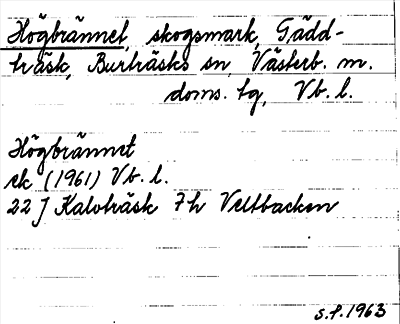 Högbrännet, skogsmark, Gädd-
träsk, Burträsks sn, Västerb. m.
doms. tg, Vb. l.
Högbrännet
ek (1961) Vb. l.
22 J Kalvträsk 7h Veltbacken
S.P. 1963